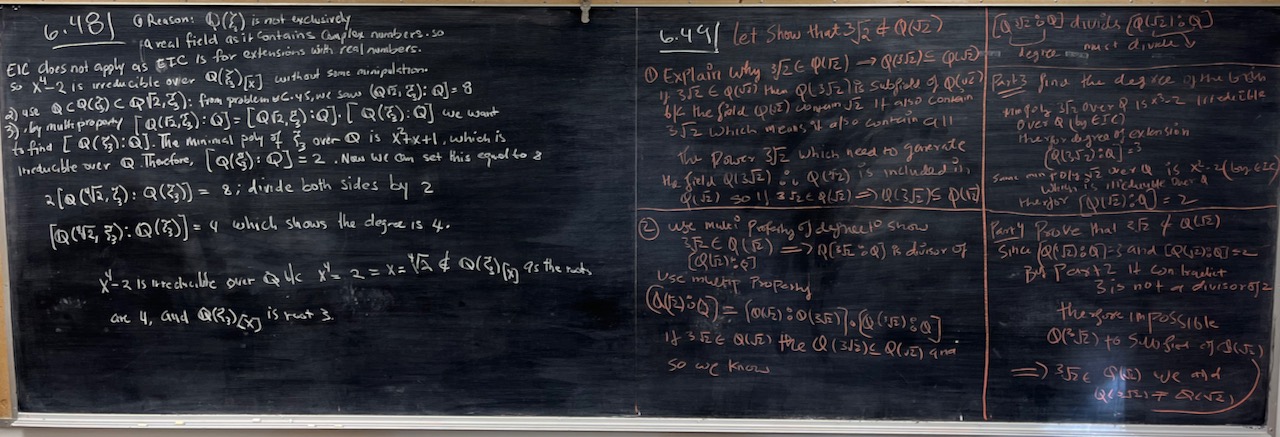 6.48) ① Reason: Q(ξ₃) is not exclusively
a real field as it contains complex numbers. so
EIC does not apply as EIC is for extensions with real numbers.
so x⁴-2 is irreducible over Q(ξ₃)[x] without some manipulation.
2) use Q ⊂ Q(ξ₃) ⊂ Q(∜2, ξ₃): from problem 6.45, we saw [Q(∜2, ξ₃): Q] = 8
3) by multi property [Q(∜2, ξ₃): Q] = [Q(∜2, ξ₃): Q] · [Q(ξ₃): Q] we want
to find [Q(ξ₃): Q]. The minimal poly of ξ₃ over Q is x²+x+1, which is
irreducible over Q. Therefore, [Q(ξ₃): Q] = 2. Now we can set this equal to 8
2[Q(∜2, ξ₃): Q(ξ₃)] = 8; divide both sides by 2
[Q(∜2, ξ₃): Q(ξ₃)] = 4 which shows the degree is 4.
x⁴-2 is irreducible over Q b/c x⁴= 2 = x = ∜2 ∉ Q(ξ₃)[x] as the roots
are 4, and Q(ξ₃)[x] is root 3.
6.49) let Show that 3√2 ∉ Q(√2)
① Explain why 3√2 ∈ Q(√2) → Q(3√2) ⊆ Q(√2)
if 3√2 ∈ Q(√2) then Q(3√2) is subfield of Q(√2)
b/c the field Q(√2) contain √2 it also contain
3√2 which means it also contain all
the Power 3√2 which need to generate
the field Q(3√2) ∴ Q(3√2) is included in
Q(√2) so if 3√2 ∈ Q(√2) ⟹ Q(3√2) ⊆ Q(√2)
② use multi Property of degree to show
3√2 ∈ Q(√2) ⟹ [Q(3√2): Q] is divisor of
[Q(√2): Q]
use multip Property
[Q(√2): Q] = [Q(√2): Q(3√2)] · [Q(3√2): Q]
if 3√2 ∈ Q(√2) the Q(3√2) ⊆ Q(√2) and
so we know
[Q(3√2): Q] divides [Q(√2): Q]
degree must divide
Part 3 find the degree of the both
min poly 3√2 over Q is x³-2 irreducible
over Q (by EIC)
therfor degree of extension
[Q(3√2): Q] = 3
same min poly √2 over Q is x²-2 (by EIC)
which is irreducible over Q
therfor [Q(√2): Q] = 2
Part 4 Prove that 3√2 ∉ Q(√2)
Since [Q(3√2): Q] = 3 and [Q(√2): Q] = 2
But Part 2 it contradict
3 is not a divisor of 2
therfore impossible
Q(3√2) to subfield of Q(√2)
⟹ 3√2 ∈ Q(√2) we
Q(3√2) ≠ Q(√2)